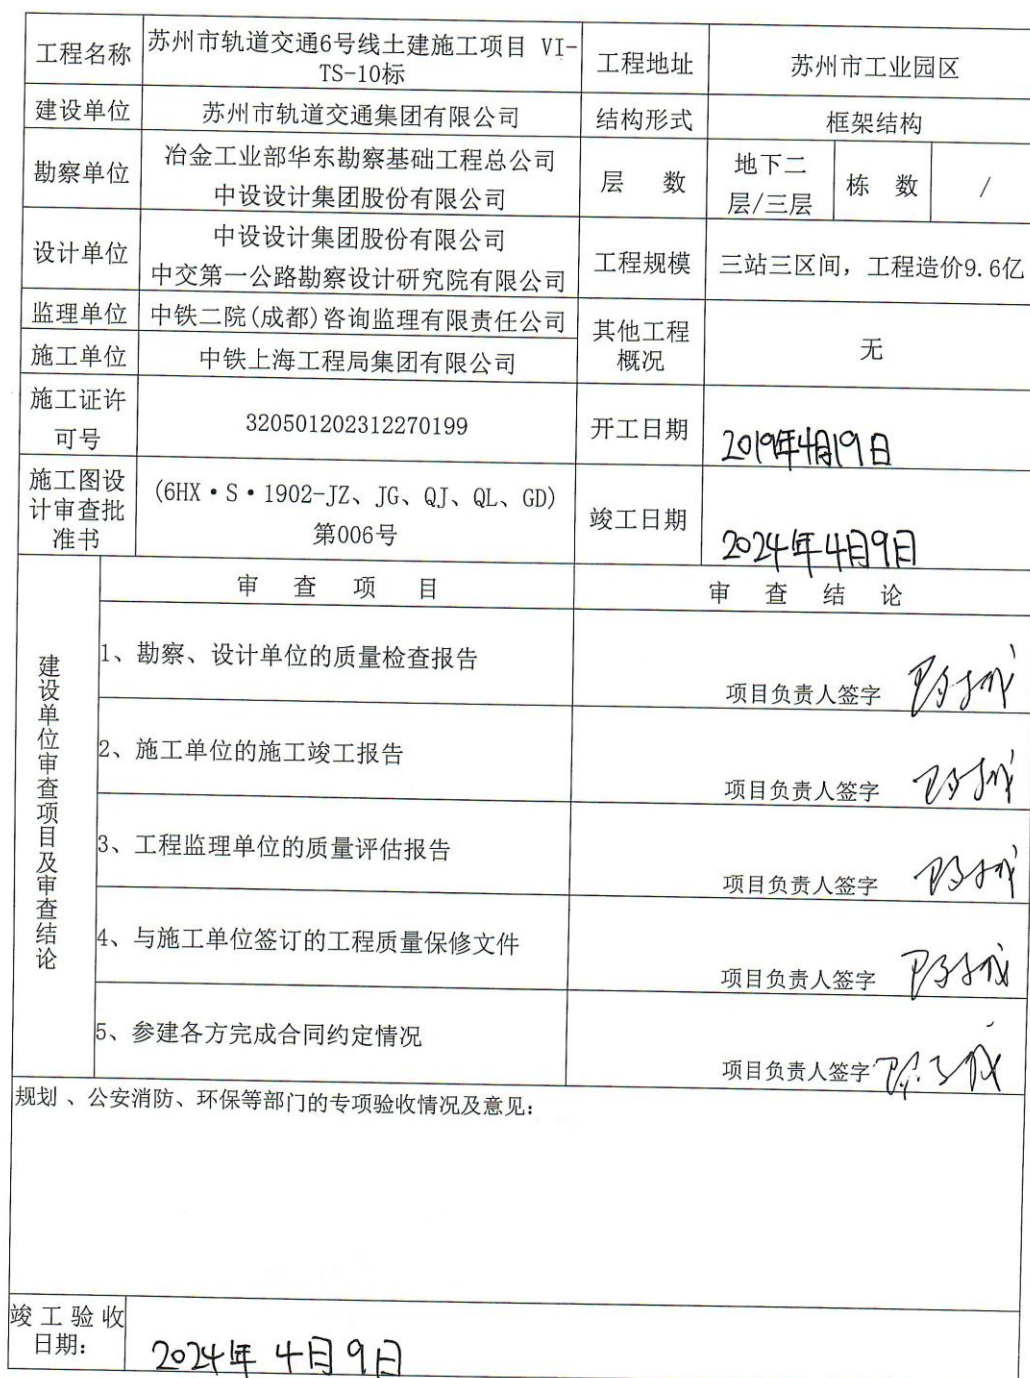 工程名称
苏州市轨道交通6号线土建施工项目 VI-
TS-10标
工程地址
苏州市工业园区
建设单位
苏州市轨道交通集团有限公司
结构形式
框架结构
勘察单位
冶金工业部华东勘察基础工程总公司
中设设计集团股份有限公司
层 数
地下二
层/三层
栋 数
/
设计单位
中设设计集团股份有限公司
中交第一公路勘察设计研究院有限公司
工程规模
三站三区间，工程造价9.6亿
监理单位
中铁二院(成都)咨询监理有限责任公司
其他工程
概况
无
施工单位
中铁上海工程局集团有限公司
施工证许
可号
320501202312270199
开工日期
2019年4月19日
施工图设
计审查批
准书
(6HX·S·1902-JZ、JG、QJ、QL、GD)
第006号
竣工日期
2024年4月9日
建设单位审查项目及审查结论
审 查 项 目
审 查 结 论
1、勘察、设计单位的质量检查报告
项目负责人签字
2、施工单位的施工竣工报告
项目负责人签字
3、工程监理单位的质量评估报告
项目负责人签字
4、与施工单位签订的工程质量保修文件
项目负责人签字
5、参建各方完成合同约定情况
项目负责人签字
规划 、公安消防、环保等部门的专项验收情况及意见：
竣工验收
日期：
2024年 4月9日